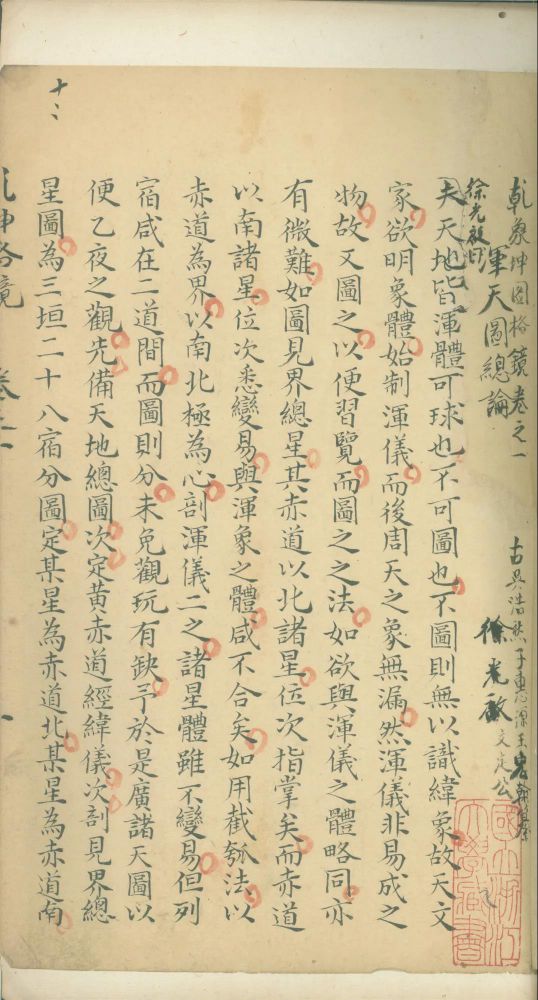 乾象坤圖格鏡卷之一
古吳浩然子惠源王宏翰纂
徐光啟曰
渾天圖總論
徐光啟文定公
夫天地皆渾體可球也不可圖也不圖則無以識緯象故天文
家欲明象體始制渾儀而後周天之象無漏然渾儀非易成之
物故又圖之以便習覽而圖之之法如欲與渾儀之體略同亦
有微難如圖見界總星其赤道以北諸星位次指掌矣而赤道
以南諸星位次悉變易與渾象之體咸不合矣如用截瓠法以
赤道為界以南北極為心剖渾儀二之諸星體雖不變易但列
宿咸在二道間而圖則分未免觀玩有缺予於是廣諸天圖以
便乙夜之觀先備天地總圖次定黃赤道經緯儀次剖見界總
星圖為三垣二十八宿分圖定某星為赤道北某星為赤道南
國立浙江大學圖書